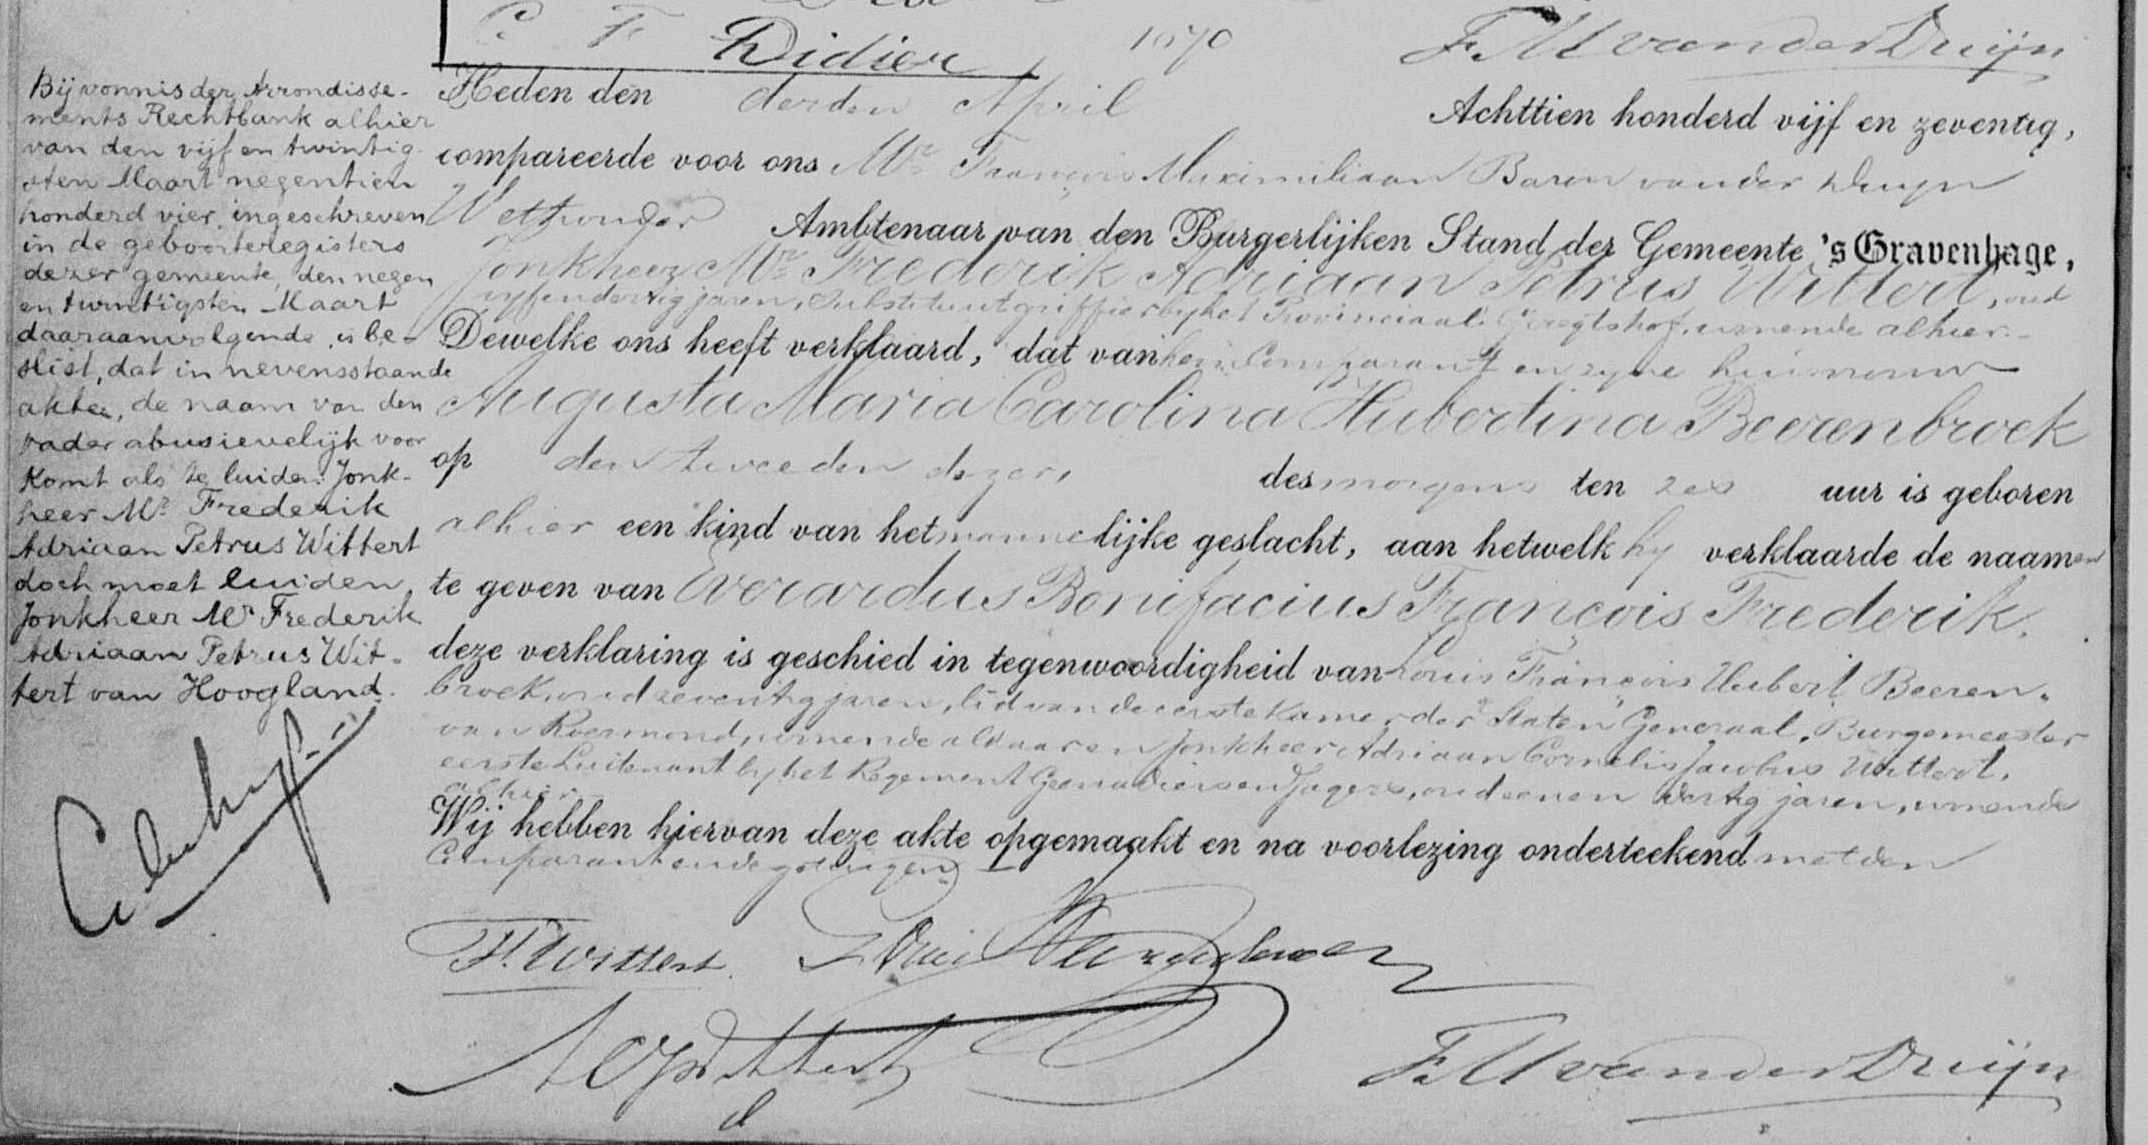 C F Didier 1870 F.M vander Duijn
Bij vonnis der Arrondisse-
ments Rechtbank alhier
van den vijf en twintig-
sten Maart negentien
honderd vier, ingeschreven
in de geboorteregisters
dezer gemeente, den negen
en twintigsten Maart
daaraanvolgende, is be-
slist, dat in nevensstaande
akte, de naam van den
vader abusievelijk voor
komt als te luiden: Jonk-
heer Mr. Frederik
Adriaan Petrus Wittert
doch moet luiden
Jonkheer Mr Frederik
Adriaan Petrus Wit-
tert van Hoogland.
Heden den derden April Achttien honderd vijf en zeventig,
compareerde voor ons Mr. François Maximiliaan Baron vander Duyn
Wethouder Ambtenaar van den Burgerlijken Stand der Gemeente 's Gravenhage,
Jonkheer Mr. Frederik Adriaan Petrus Wittert, oud
vyfendertig jaren, Substituutgriffier by het Provinciaal Geregtshof, wonende alhier.
Dewelke ons heeft verklaard, dat van hem Comparant en zyne huisvrouw
Augusta Maria Carolina Hubertina Beerenbroek
op den tweeden dezer, des morgens ten zes uur is geboren
alhier een kind van het mannelijke geslacht, aan hetwelk hy verklaarde de naamen
te geven van Everardus Bonifacius François Frederik.
deze verklaring is geschied in tegenwoordigheid van Louis François Hubert Beeren-
broek, oud zeventig jaren, lid van de eerste Kamer der Staten Generaal, Burgemeester
van Roermond, wonende aldaar en Jonkheer Adriaan Cornelis Jacobus Wittert,
eerste Luitenant by het Regement Grenadiers en Jagers, oud een en dertig jaren, wonende
alhier.
Wij hebben hiervan deze akte opgemaakt en na voorlezing onderteekend met den
Comparant en de getuigen.
F. Wittert.
ACJ Wittert
F.M vander Duijn